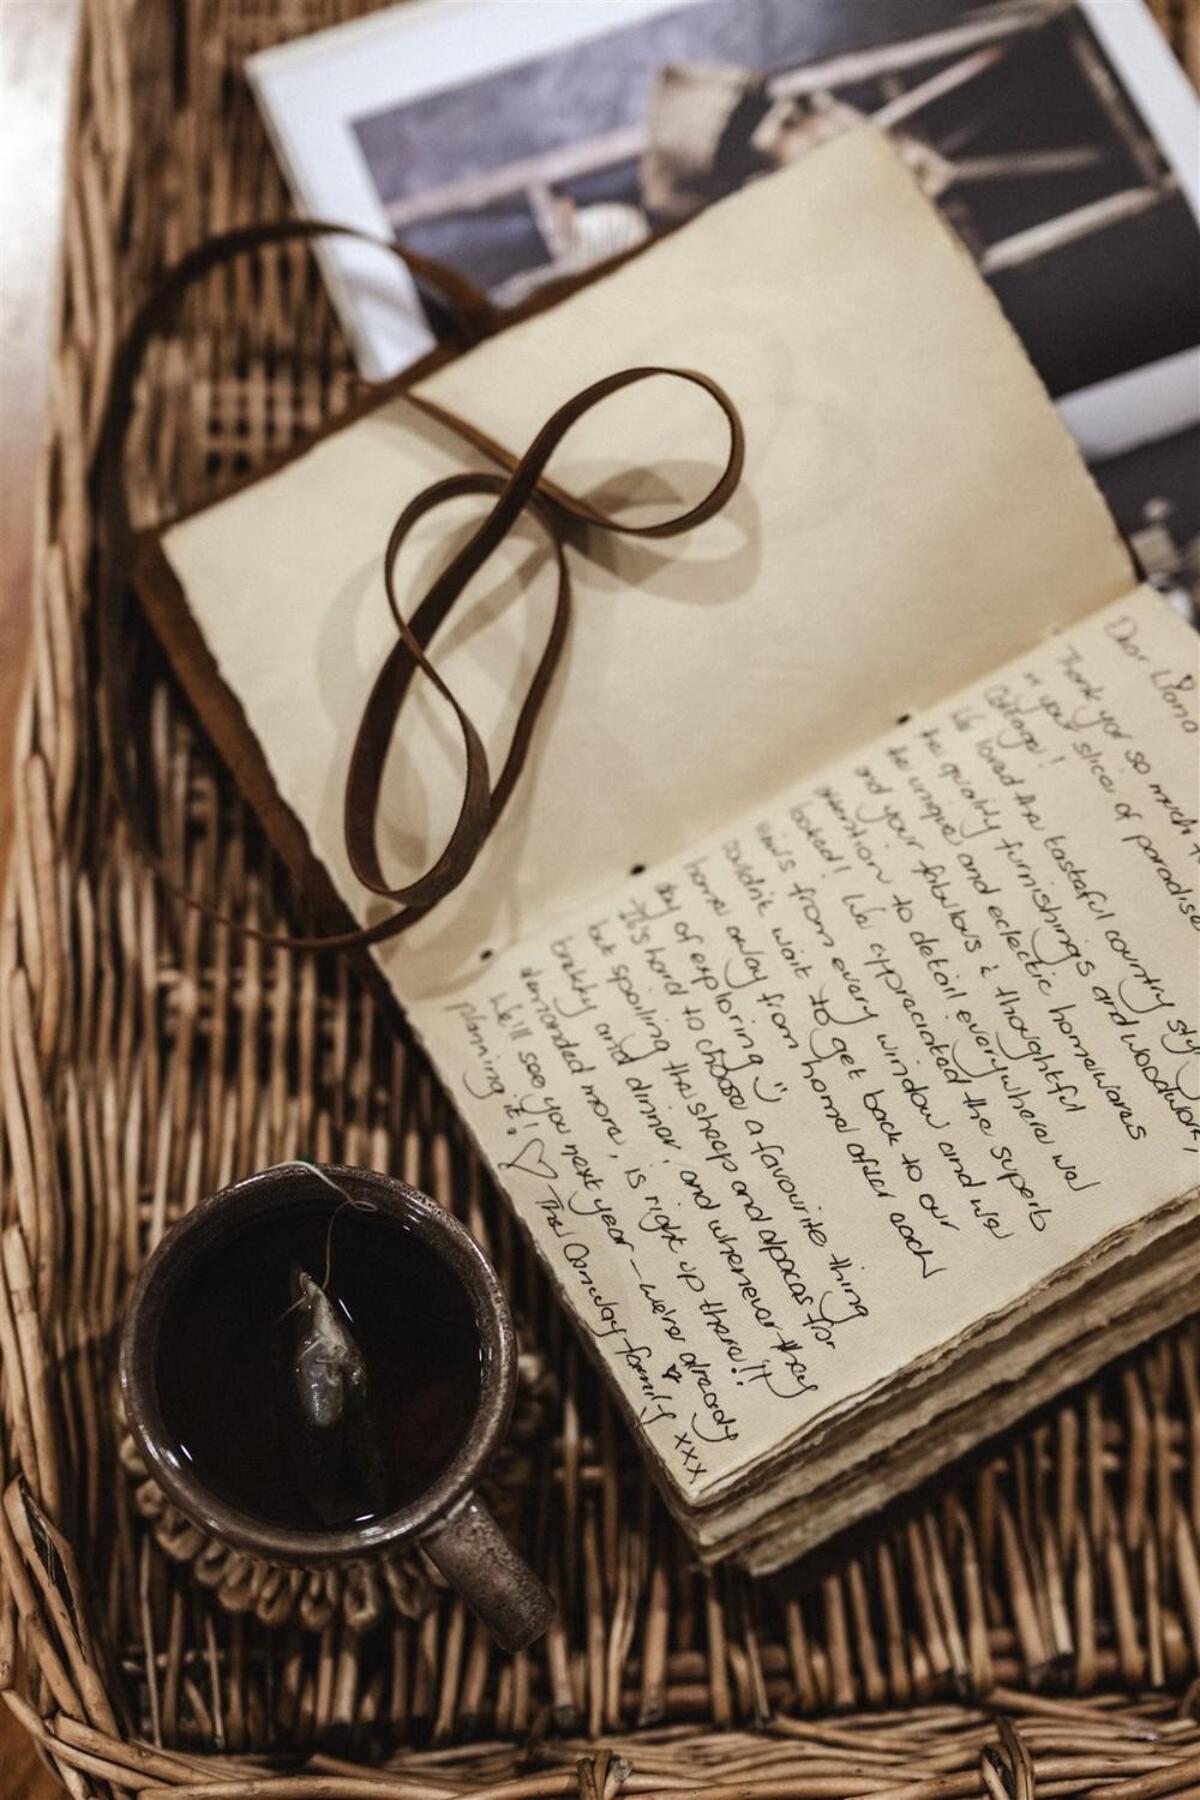 Dear Liana
Thank you so much
in your slice of paradise
Cottage!
We loved the tasteful country
the quality furnishings and woodwork,
the unique and eclectic homewares
and your fabulous & thoughtful
attention to detail everywhere we
looked! We appreciated the superb
views from every window and we
couldn't wait to get back to our
home away from home after each
day of exploring :)
It's hard to choose a favourite thing
but spoiling the sheep and alpacas for
brekky and dinner, and whenever they
demanded more, is right up there!!
We'll see you next year - we're already
planning it! ♡ The Conway family xxx